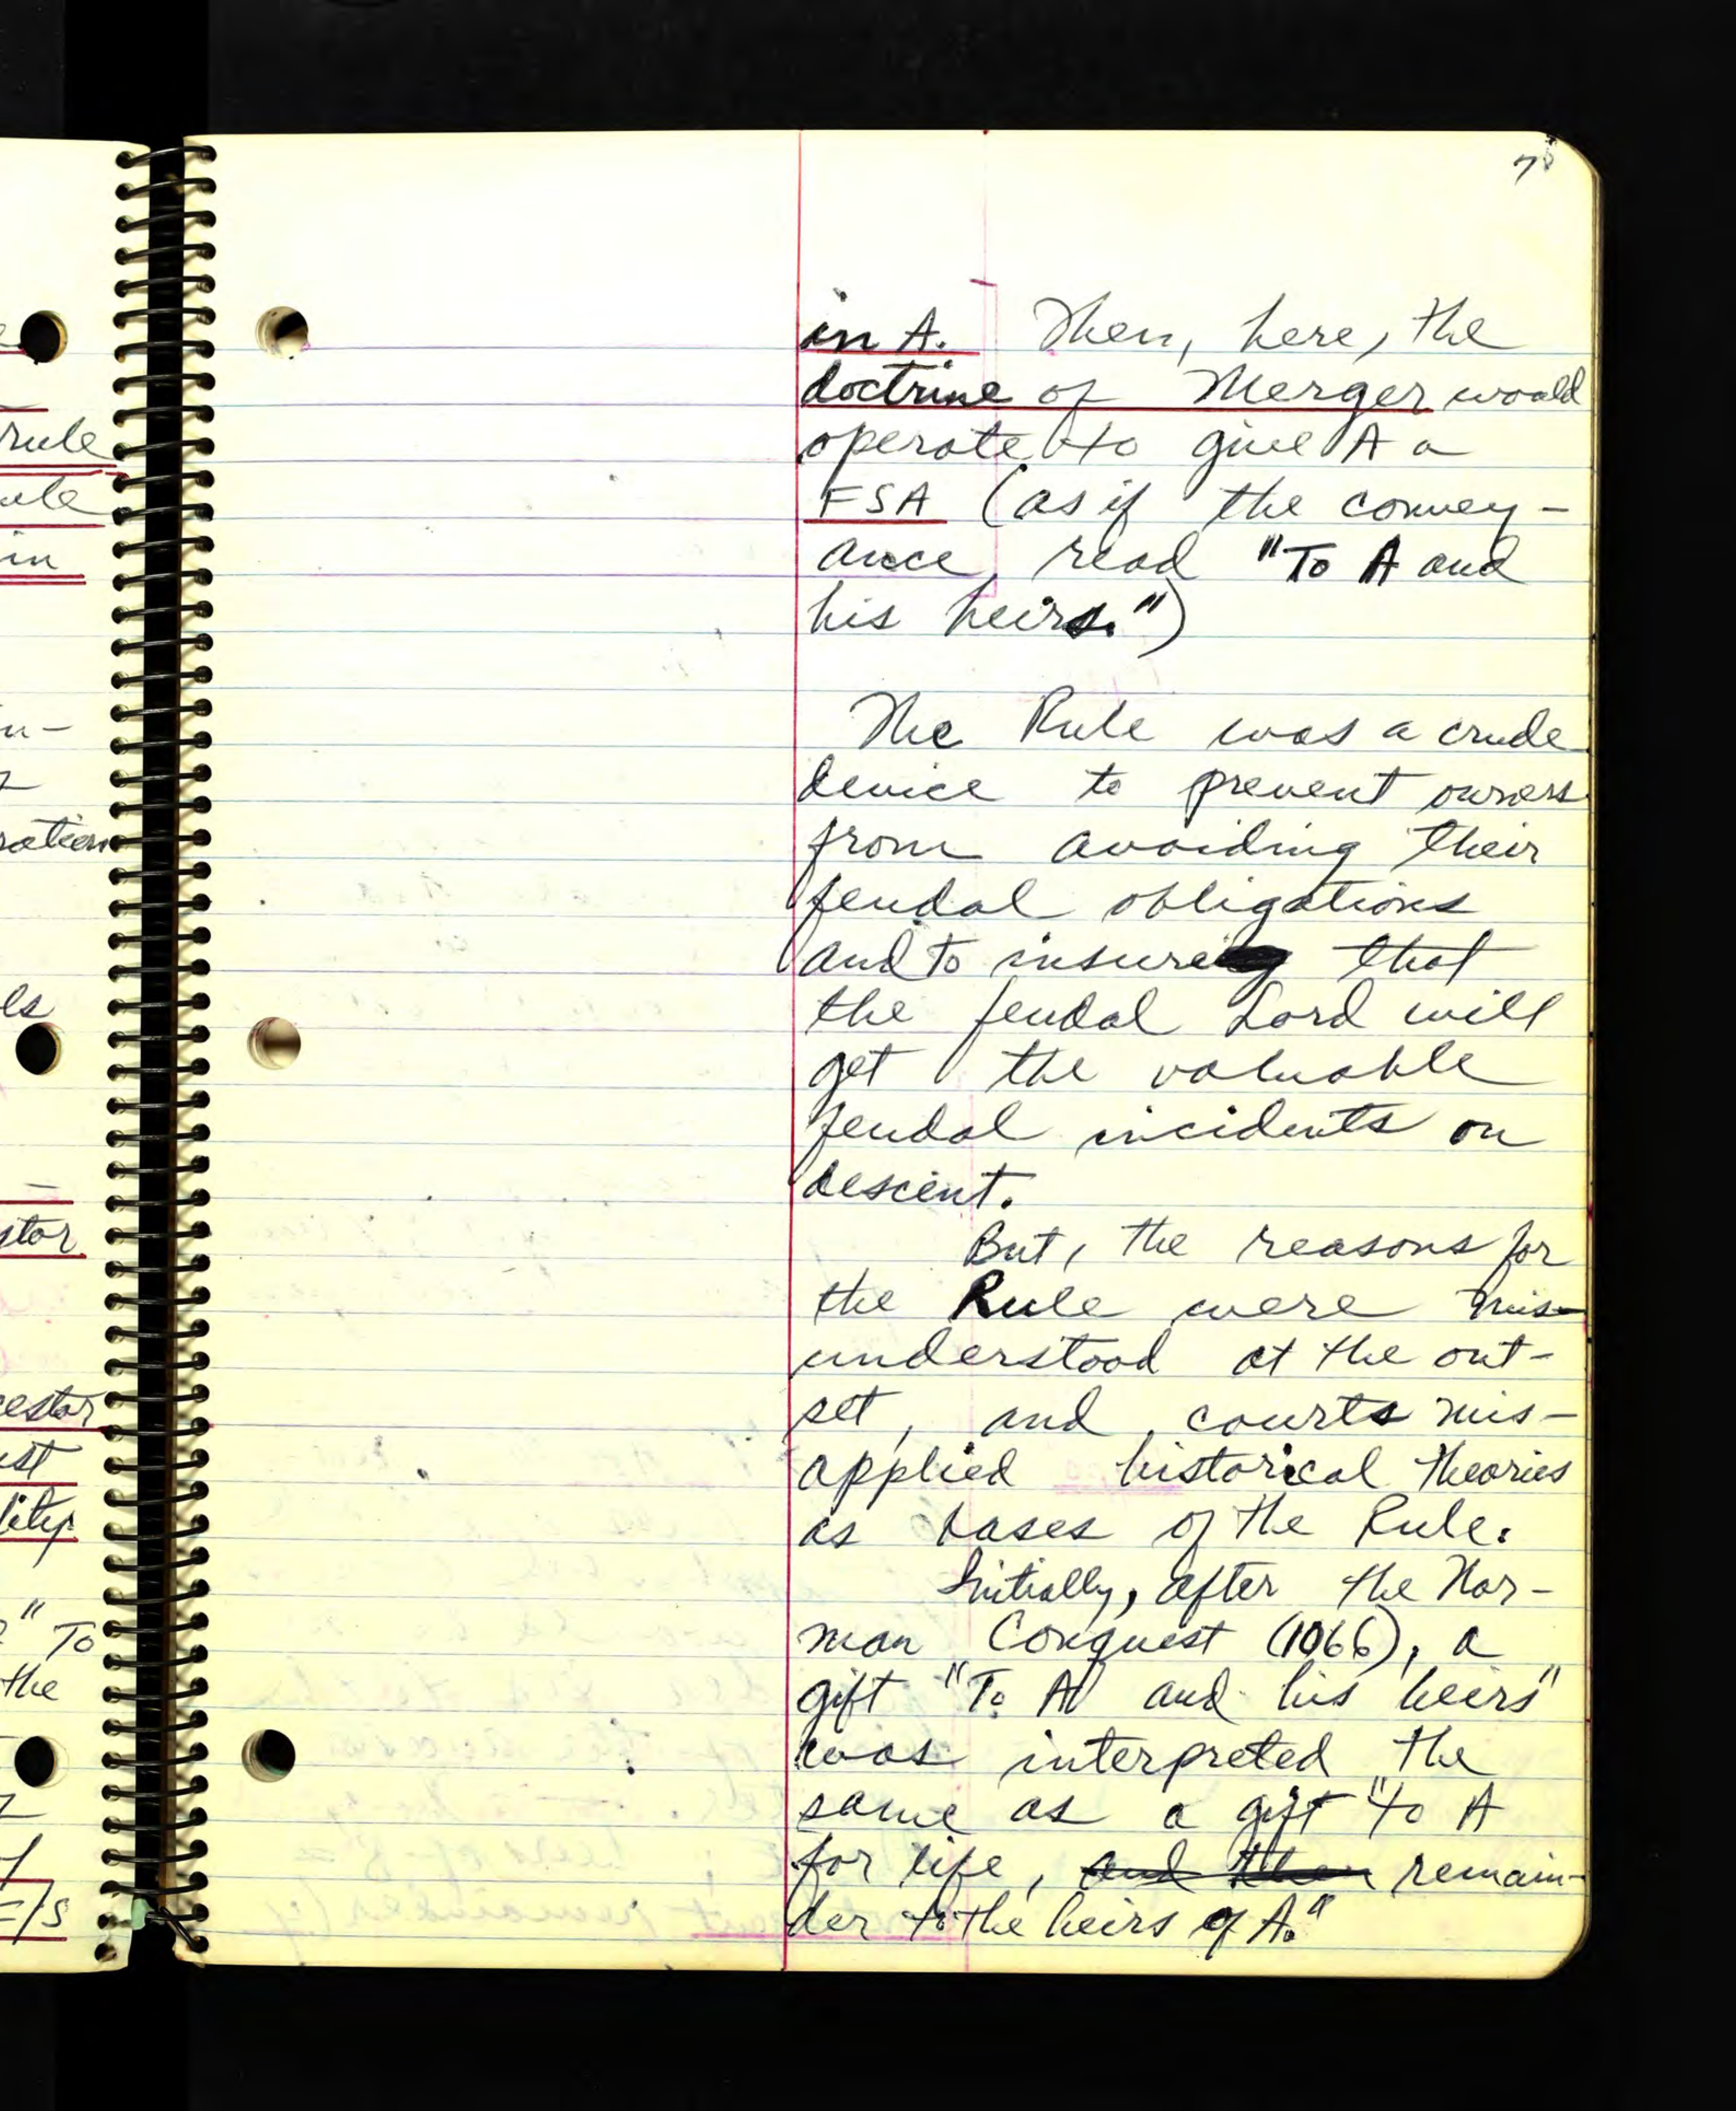 rule
in
ration
estor
" To
the
78
in A. Then, here, the
doctrine of Merger would
operate to give A a
FSA (as if the convey-
ance, read "To A and
his heirs.")
The Rule was a crude
device to prevent owners
from avoiding their
feudal obligations
and to insure that
the feudal Lord will
get the valuable
feudal incidents on
descent.
But, the reasons for
the Rule were mis-
understood at the out-
set, and courts mis-
applied historical theories
as bases of the Rule.
Initially, after the Nor-
man Conquest (1066), a
gift "To A and his heirs"
was interpreted the
same as a gift "to A
for life, and then remain-
der to the heirs of A."